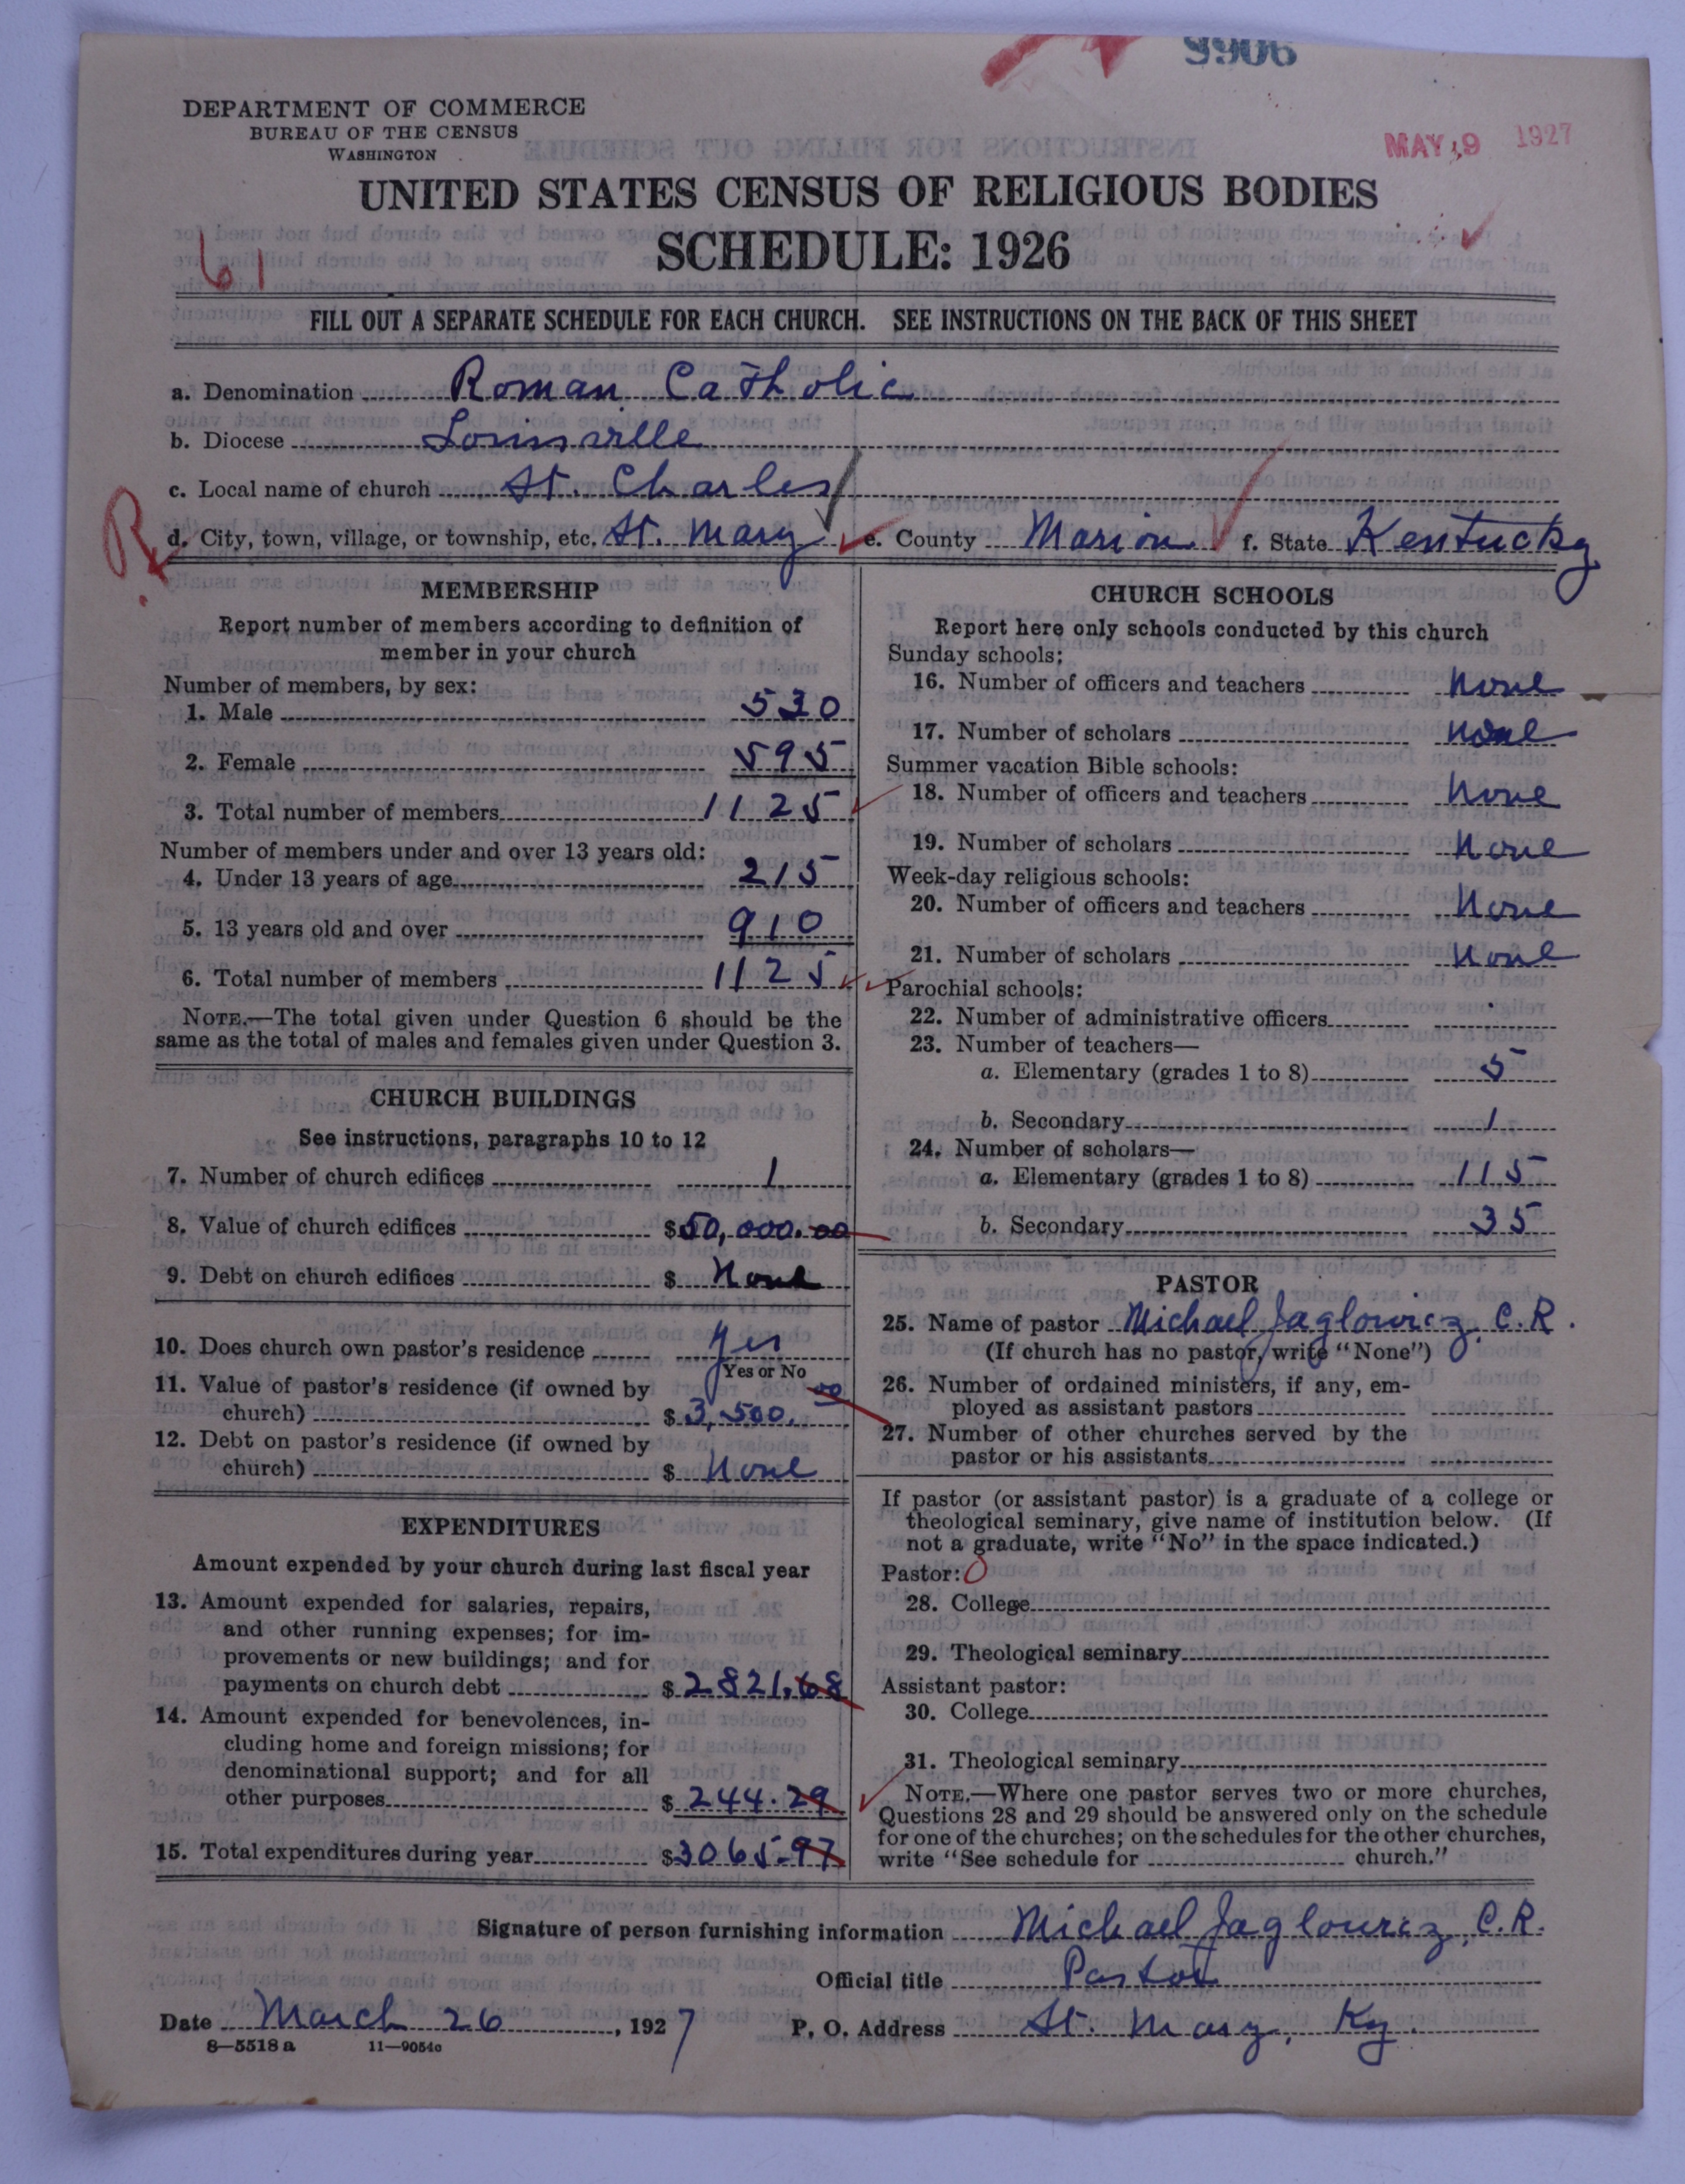 9906
DEPARTMENT OF COMMERCE
BUREAU OF THE CENSUS
WASHINGTON
MAY 9 1927
UNITED STATES CENSUS OF RELIGIOUS BODIES
SCHEDULE: 1926
61
FILL OUT A SEPARATE SCHEDULE FOR EACH CHURCH. SEE INSTRUCTIONS ON THE BACK OF THIS SHEET
a. Denomination Roman Catholic
b. Diocese Louisville
c. Local name of church St. Charles
R
d. City, town, village, or township, etc. St. Mary e. County Marion f. State Kentucky
MEMBERSHIP
Report number of members according to definition of
member in your church
Number of members, by sex:
1. Male 530
2. Female 595
3. Total number of members 1125
Number of members under and over 13 years old:
4. Under 13 years of age 215
5. 13 years old and over 910
6. Total number of members 1125
NOTE.—The total given under Question 6 should be the
same as the total of males and females given under Question 3.
CHURCH BUILDINGS
See instructions, paragraphs 10 to 12
7. Number of church edifices 1
8. Value of church edifices $50,000.00
9. Debt on church edifices $ None
10. Does church own pastor's residence Yes
Yes or No
11. Value of pastor's residence (if owned by
church) $3,500.00
12. Debt on pastor's residence (if owned by
church) $ None
EXPENDITURES
Amount expended by your church during last fiscal year
13. Amount expended for salaries, repairs,
and other running expenses; for im-
provements or new buildings; and for
payments on church debt $2821.68
14. Amount expended for benevolences, in-
cluding home and foreign missions; for
denominational support; and for all
other purposes $244.29
15. Total expenditures during year $3065.97
CHURCH SCHOOLS
Report here only schools conducted by this church
Sunday schools:
16. Number of officers and teachers None
17. Number of scholars None
Summer vacation Bible schools:
18. Number of officers and teachers None
19. Number of scholars None
Week-day religious schools:
20. Number of officers and teachers None
21. Number of scholars None
Parochial schools:
22. Number of administrative officers
23. Number of teachers—
a. Elementary (grades 1 to 8) 5
b. Secondary 1
24. Number of scholars—
a. Elementary (grades 1 to 8) 115
b. Secondary 35
PASTOR
25. Name of pastor Michael Jaglowicz, C.R.
(If church has no pastor, write "None")
26. Number of ordained ministers, if any, em-
ployed as assistant pastors
27. Number of other churches served by the
pastor or his assistants
If pastor (or assistant pastor) is a graduate of a college or
theological seminary, give name of institution below. (If
not a graduate, write "No" in the space indicated.)
Pastor: 0
28. College
29. Theological seminary
Assistant pastor:
30. College
31. Theological seminary
NOTE.—Where one pastor serves two or more churches,
Questions 28 and 29 should be answered only on the schedule
for one of the churches; on the schedules for the other churches,
write "See schedule for church."
Signature of person furnishing information Michael Jaglowicz, C.R.
Official title Pastor
Date March 26, 1927 P. O. Address St. Mary, Ky.
8—5518a 11—9054c